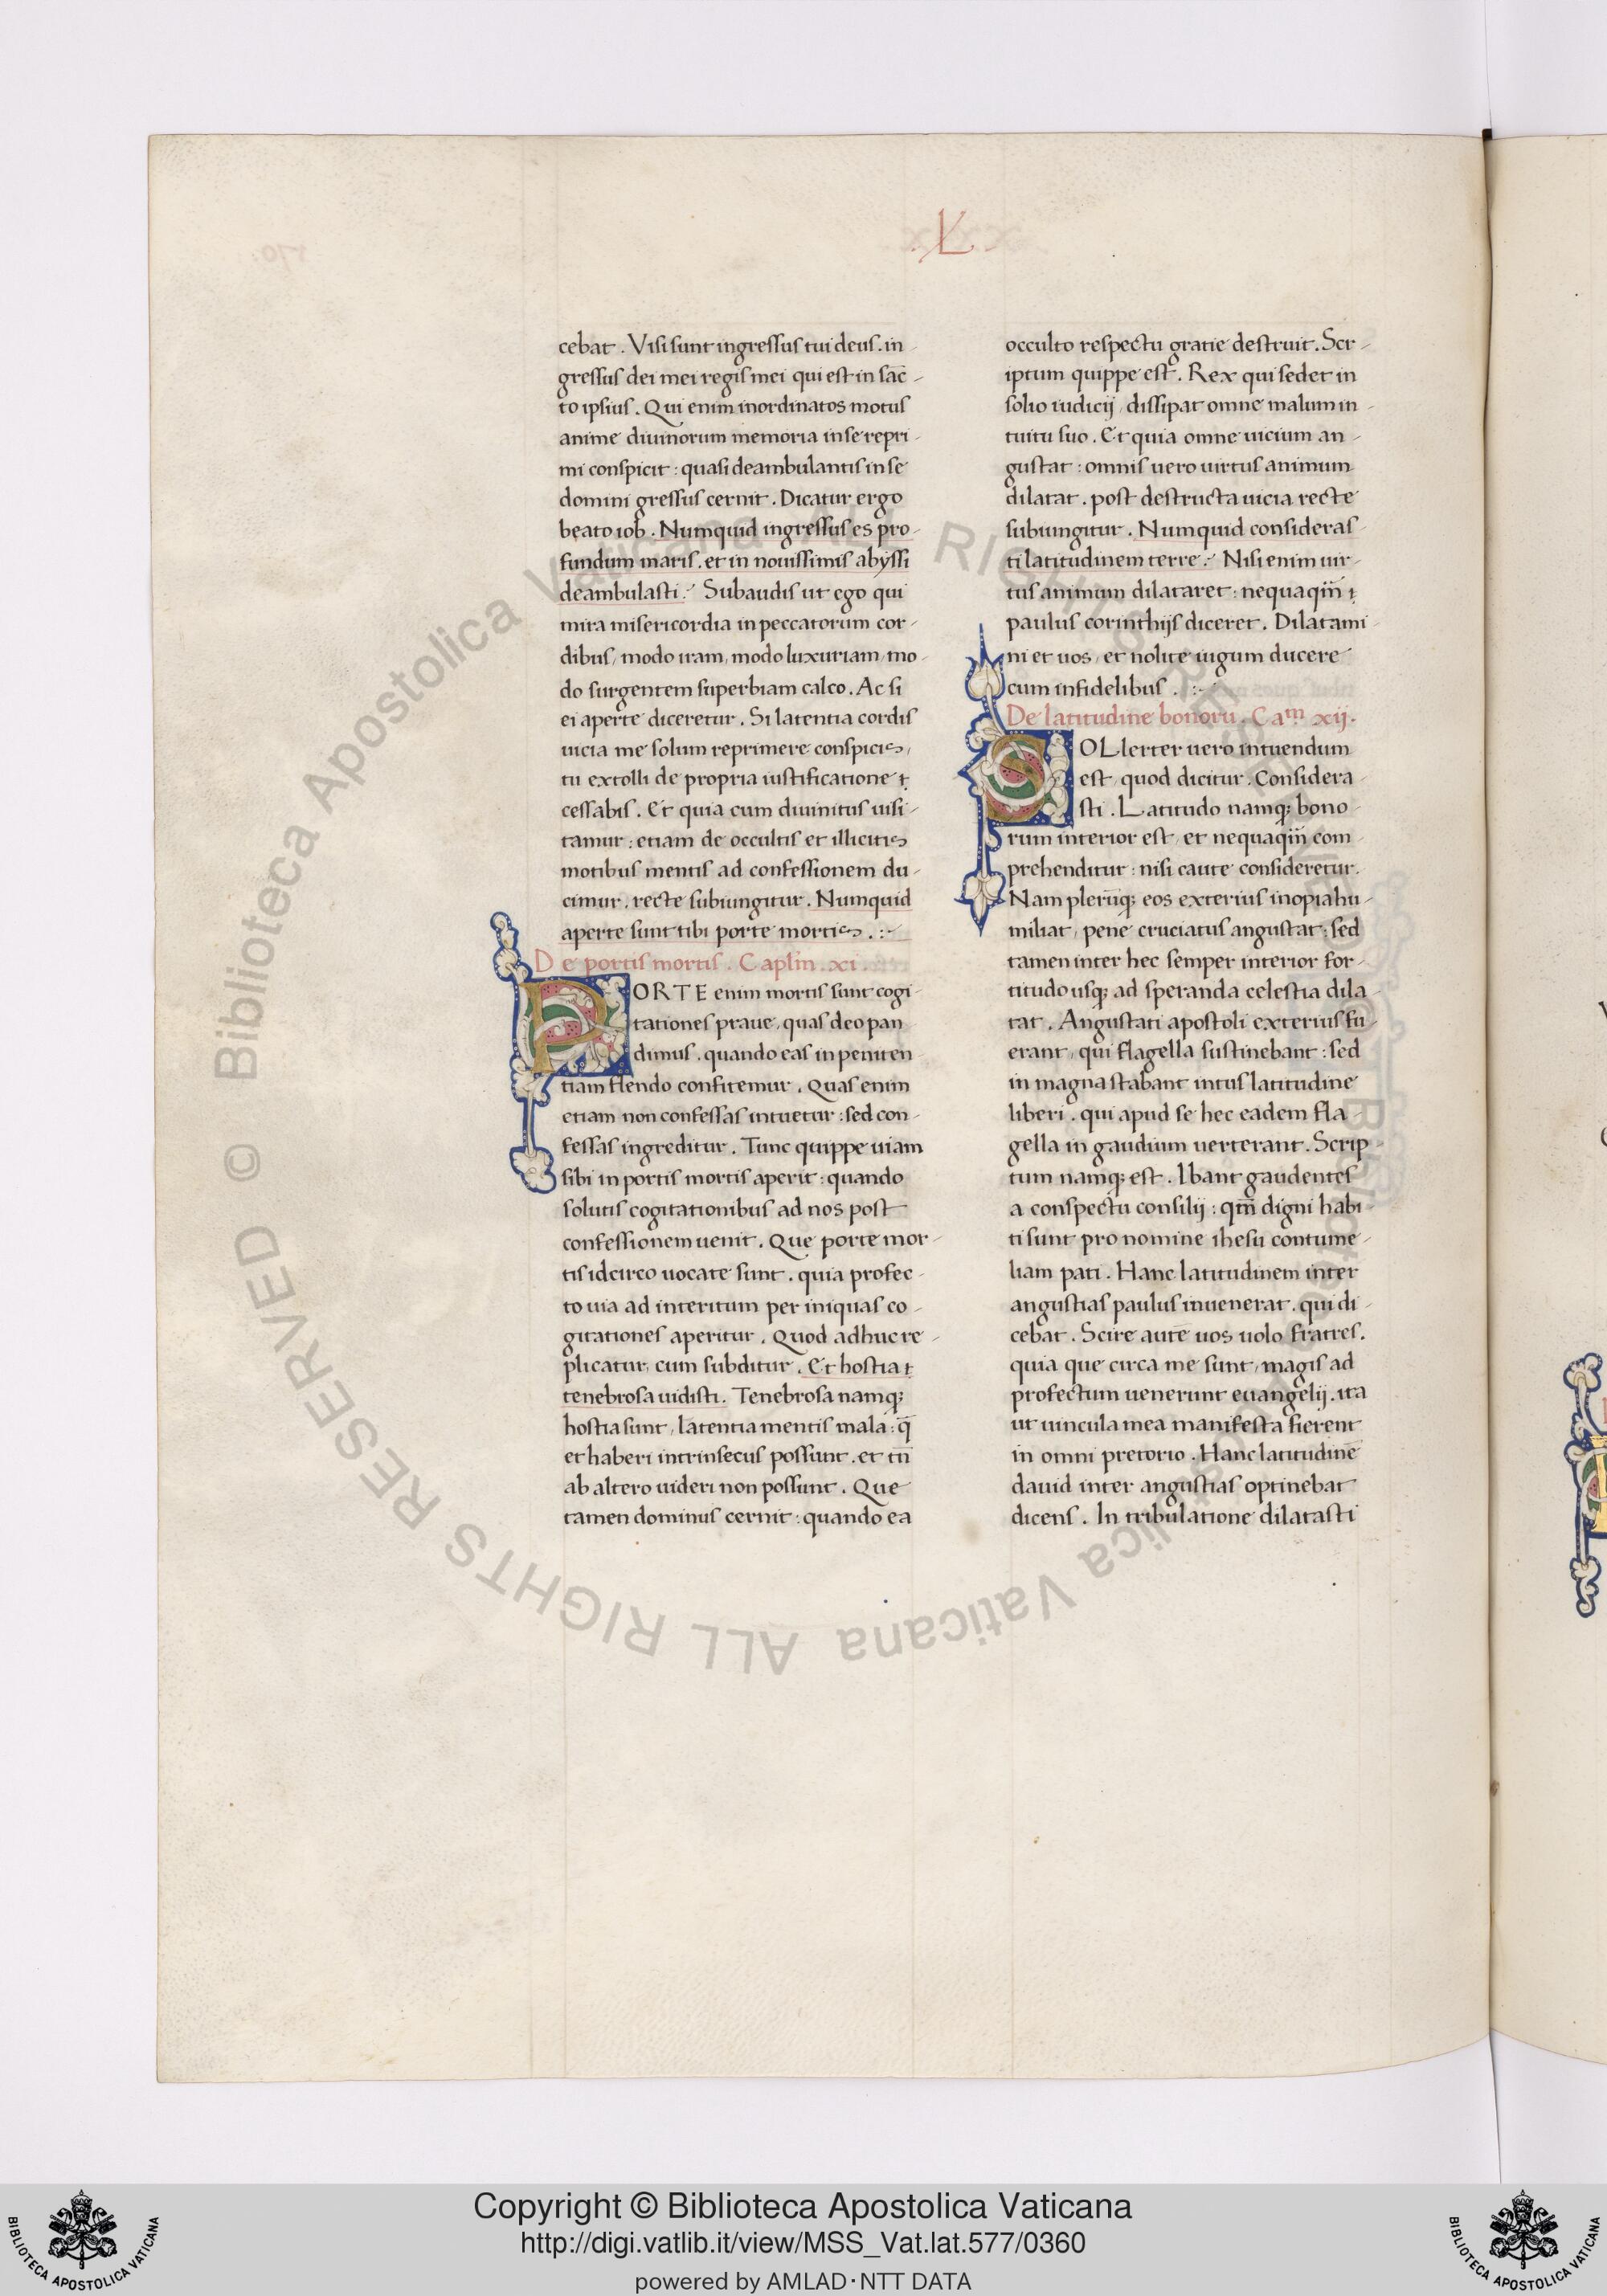 .L.
cebat . Visi sunt ingressus tui deus . in-
gressus dei mei regis mei qui est in sāc-
to ipsius . Qui enim inordinatos motus
anime diuinorum memoria in se repri-
mi conspicit : quasi deambulantis in se
domini gressus cernit . Dicatur ergo
beato iob . Numquid ingressus es pro-
fundum maris . et in nouissimis abyssi
deambulasti : Subaudis ut ego qui
mira misericordia in peccatorum cor-
dibus / modo iram / modo luxuriam / mo-
do surgentem superbiam calco . Ac si
ei aperte diceretur . Si latentia cordis
uicia me solum reprimere conspicis /
tu extolli de propria iustificatione t
cessabis . Et quia cum diuinitus uisi-
tamur : etiam de occultis et illicitis
motibus mentis ad confessionem du-
cimur . recte subiungitur . Numquid
aperte sunt tibi porte mortis . :-
De portis mortis . Caplm̄ . xi .
PORTE enim mortis sunt cogi-
tationes praue / quas deo pan
dimus . quando eas in peniten
tiam flendo confitemur . Quas enim
etiam non confessas intuetur : sed con-
fessas ingreditur . Tunc quippe uiam
sibi in portis mortis aperit : quando
solutis cogitationibus ad nos post
confessionem uenit . Que porte mor-
tis idcirco uocate sunt . quia profec-
to uia ad interitum per iniquas co-
gitationes aperitur . Quod adhuc re-
plicatur / cum subditur . Et hostia t
tenebrosa uidisti . Tenebrosa namq;
hostia sunt / latentia mentis mala : q̄
et haberi intrinsecus possunt . et tn̄
ab altero uideri non possunt . Que
tamen dominus cernit : quando ea
occulto respectu gratie destruit . Scr-
iptum quippe est . Rex qui sedet in
solio iudicij / dissipat omne malum in-
tuitu suo . Et quia omne uicium an-
gustat : omnis uero uirtus animum
dilatat . post destructa uicia recte
subiungitur . Numquid consideras-
ti latitudinem terre : Nisi enim uir-
tus animum dilataret : nequaqm̄ t
paulus corinthijs diceret . Dilatami-
ni et uos / et nolite iugum ducere
cum infidelibus . :-
De latitudine bonoru . Cam . xij .
SOLlerter uero intuendum
est / quod dicitur . Considera-
sti . Latitudo namq; bono-
rum interior est / et nequaqm̄ com-
prehenditur : nisi caute consideretur .
Nam plerūq; eos exterius inopia hu-
miliat / pene cruciatus angustat : sed
tamen inter hec semper interior for-
titudo usq; ad speranda celestia dila
tat . Angustati apostoli exterius fu-
erant / qui flagella sustinebant : sed
in magna stabant intus latitudine
liberi . qui apud se hec eadem fla-
gella in gaudium uerterant . Scrip-
tum namq; est . Ibant gaudentes
a conspectu consilij : qm̄ digni habi-
ti sunt pro nomine ihesu contume-
liam pati . Hanc latitudinem inter
angustias paulus inuenerat . qui di-
cebat . Scire autē uos uolo fratres .
quia que circa me sunt / magis ad
profectum uenerunt euangelij . ita
ut uincula mea manifesta fierent
in omni pretorio . Hanc latitudinē
dauid inter angustias optinebat
dicens . In tribulatione dilatasti
© Biblioteca Apostolica Vaticana ALL RIGHTS RESERVED © Biblioteca Apostolica Vaticana ALL RIGHTS RESERVED
Copyright © Biblioteca Apostolica Vaticana
http://digi.vatlib.it/view/MSS_Vat.lat.577/0360
powered by AMLAD·NTT DATA
BIBLIOTECA APOSTOLICA VATICANA
BIBLIOTECA APOSTOLICA VATICANA